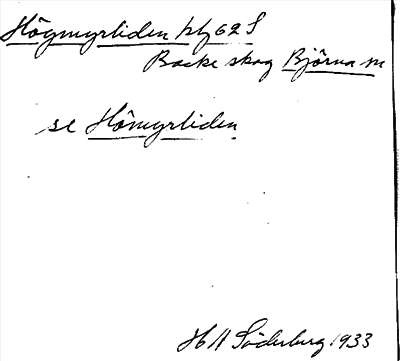 Högmyrliden kbl 62 S
Backe skog Björna sn
se Hömyrliden
H A Söderberg 1933